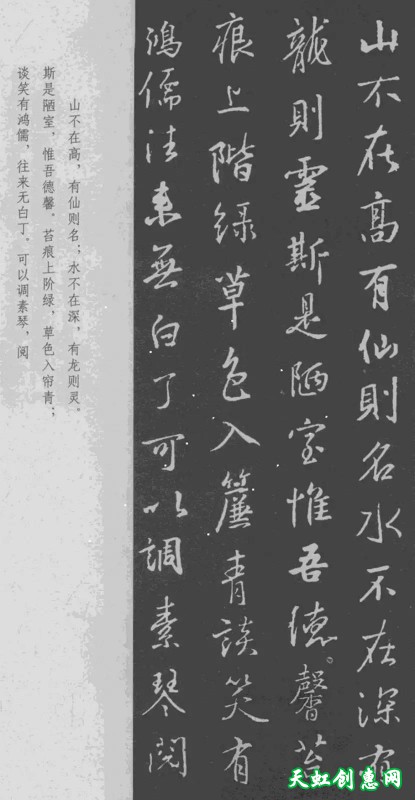 山不在高有仙則名水不在深有
龍則靈斯是陋室惟吾德馨苔
痕上階綠草色入簾青談笑有
鴻儒往來無白丁可以調素琴閱
山不在高，有仙则名；水不在深，有龙则灵。
斯是陋室，惟吾德馨。苔痕上阶绿，草色入帘青；
谈笑有鸿儒，往来无白丁。可以调素琴，阅
天虹创惠网